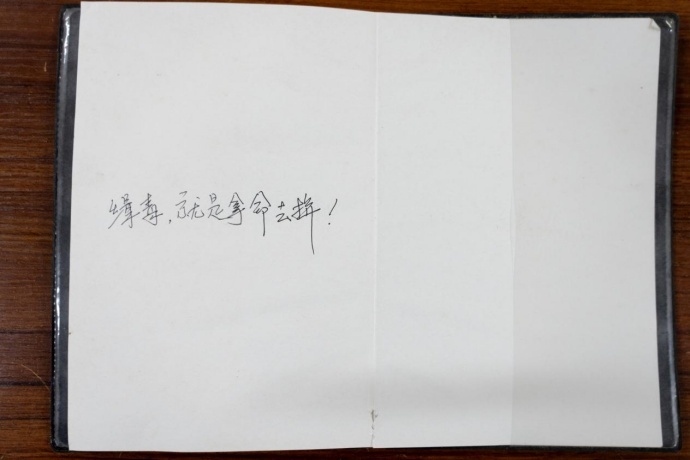 缉毒，就是拿命去拼！